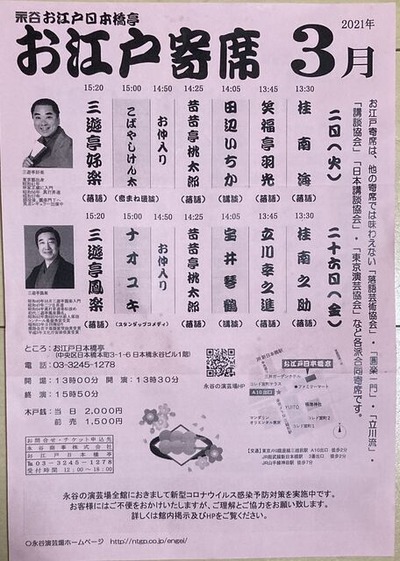 永谷お江戸日本橋亭
お江戸寄席 3月
2021年
お江戸寄席は、他の寄席では味わえない「落語芸術協会」・「圓楽一門」・「立川流」・
「講談協会」・「日本講談協会」・「東京演芸協会」など各派合同寄席です。
二日(火)
13:30 桂南海(落語)
13:45 笑福亭羽光(落語)
14:05 田辺いちか(講談)
14:25 昔昔亭桃太郎(落語)
14:50 お仲入り
15:00 こばやしけん太(恋まね漫談)
15:20 三遊亭好楽(落語)
三遊亭好楽
二十六日(金)
13:30 桂南之助(落語)
13:45 立川幸之進(落語)
14:05 宝井琴鶴(講談)
14:25 昔昔亭桃太郎(落語)
お仲入り
15:00 ナオユキ(スタンダップコメディ)
15:20 三遊亭鳳楽(落語)
三遊亭鳳楽
ところ:お江戸日本橋亭
(中央区日本橋本町3-1-6 日本橋永谷ビル1階)
電話:03-3245-1278
開場:13時00分 開演:13時30分
終演:15時50分
木戸銭:当日 2,000円
前売 1,500円
お問合せ・チケット申込先
永谷商事株式会社
お江戸日本橋亭
☎03-3245-1278
受付時間:12:00~16:00
永谷の演芸場HP
お江戸日本橋亭
ファミリーマート
A10出口
YUITO
【交通】東京メトロ銀座線三越前駅 A10出口 徒歩2分
JR総武線新日本橋駅 3番出口 徒歩2分
JR山手線神田駅 徒歩7分
永谷の演芸場全館におきまして新型コロナウイルス感染予防対策を実施中です。
お客様にはご不便をおかけいたしますが、ご理解とご協力をお願い致します。
詳しくは館内掲示及びHPをご覧ください。
〇永谷演芸場ホームページ http://ntgp.co.jp/engei/